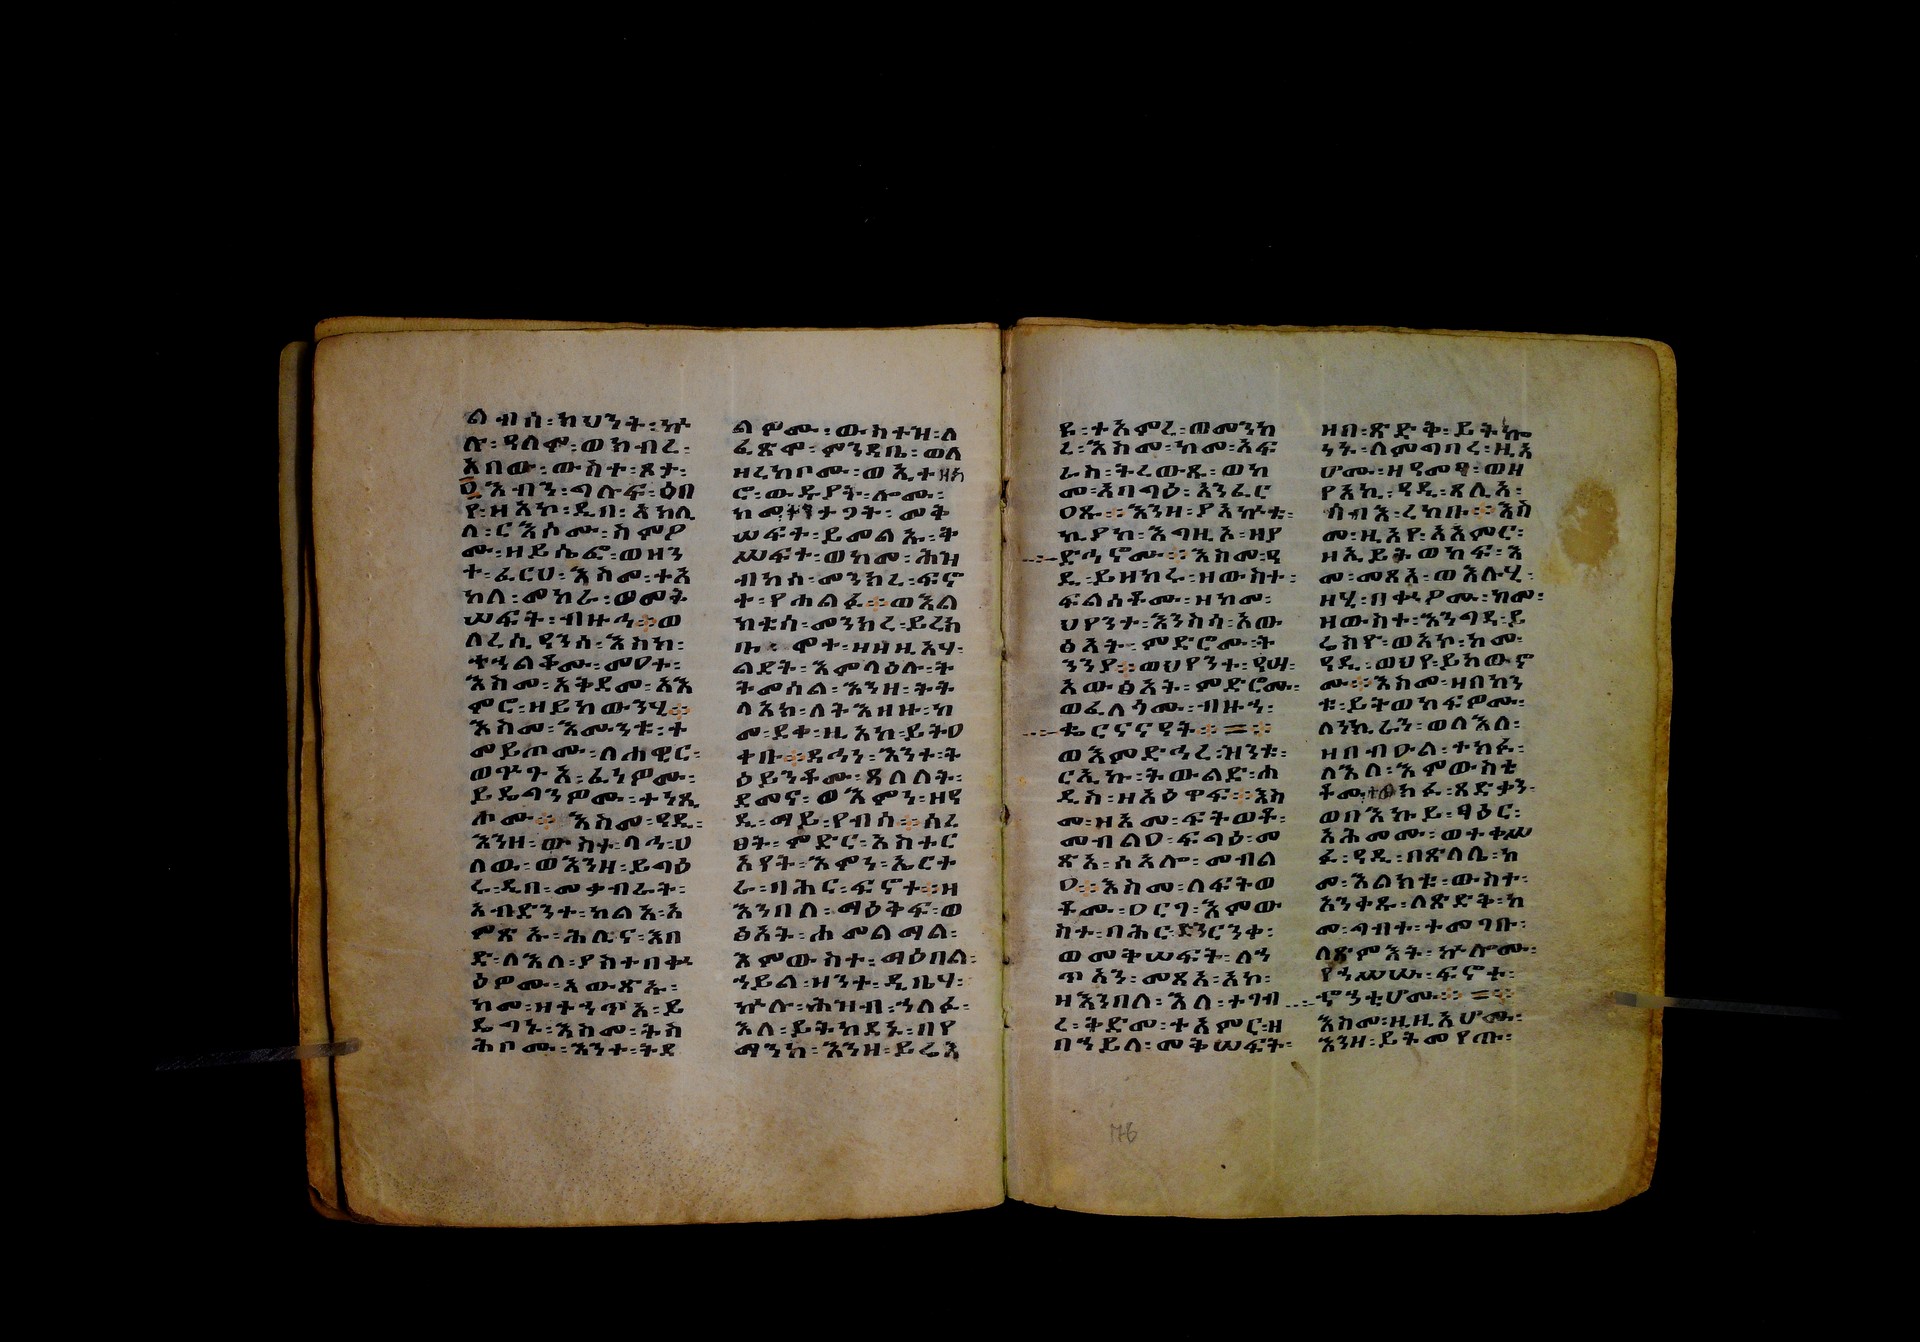 ልብሰ፡ክህነት፡ኵ
ሉ፡ዓለም፡ወክብረ፡
አበው፡ውስተ፡ጾታ፡
፬እብን፡ግሉፍ፡ዕበ
የ፡ዘአኮ፡ዲበ፡አክሊ
ለ፡ርእሶሙ፡
ሙ፡ዘይሴፎ፡ወዘን
ተ፡ፈርሀ፡እስመ፡ተአ
ክለ፡መከራ፡ወመቅ
ሠፍት፡ብዙኅ፨ወ
ለረሲዓንሰ፡እስከ፡
ተኀልቆሙ፡መዐተ፡
እስመ፡አቅደመ፡አእ
ምሮ፡ዘይከውንሂ፨
እስመ፡እሙንቱ፡ተ
መይጦሙ፡ለሐዊር፡
ወጕጕአ፡ፈነዎሙ፡
ይዴግንዎሙ፡ተነሲ
ሖሙ፨እስመ፡ዓዲ፡
እንዘ፡ውስተ፡ላሓ፡ሀ
ለው፡ወእንዘ፡ይግዕ
ሩ፡ዲበ፡መቃብራት፡
አብድንተ፡ካልአ፡አ
ምጽኡ፡ሕሊና፡እበ
ድ፡ለእለ፡ያስተበቍ
ዕዎሙ፡አውጽኡ፡
ከመ፡ዘተኀጥአ፡ይ
ዴግኑ፡እስመ፡ትስ
ሕቦሙ፡እንተ፡ትደ
ልዎሙ፡ውስተዝ፡ለ
ፈጽሞ፡ምንዳቤ፡ወለ
ዘረከቦሙ፡ወኢተዘከ
ሮ፡ውዱያት፡ሎሙ፡
ከመ ታገት፡መቅ
ሠፍት፡ይመልኡ፡ት
ሠፍተ፡ወከመ፡ሕዝ
ብከሰ፡መንክረ፡ፍኖ
ተ፡የሐልፉ፨ወእል
ክቱሰ፡መንክረ፡ይረክ
ቡ፡ሞተ፡ዘዘዚአሃ፡
ልደት፡እምላዕሉ፡ት
ትመሰል፡እንዘ፡ትት
ላአክ፡ለትእዛዙ፡ከ
መ፡ደቀ፡ዚአከ፡ይትዐ
ቀቡ፨ዳኅን፡እንተ፡ት
ዕይንቶሙ፡ጸለለት፡
ደመና፡ወእምነ፡ዘዓ
ዲ፡ማይ፡የብሰ፨ሰረ
ፀት፡ምድር፡አስተር
አየት፡እምነ፡ኤርት
ራ፡ባሕር፡ፍኖተ፨ዘ
እንበለ፡ማዕቅፍ፡ወ
ፅአት፡ሐመልማል፡
እምውስተ፡ማዕበል፡
ኀይል፡ዘንተ፡ዲቤሃ፡
ኵሉ፡ሕዝብ፡ኀለፈ፡
እለ፡ይትከደኑ፡በየ
ማንከ፡እንዘ፡ይሬእ
ዩ፡ተአምረ፡ወመንክ
ረ፡እስመ፡ከመ፡አፍ
ራስ፡ትረውጹ፡ወከ
መ፡አባግዕ፡አንፈር
ዐጹ፨እንዘ፡ያአኵቱ፡
ኪያከ፡እግዚአ፡ዘያ
ድኅኖሙ፨እስመ፡ዓ
ዲ፡ይዘከሩ፡ዘውስተ፡
ፍልሰቶሙ፡ዘከመ፡
ህየንተ፡እንስሳ፡አው
ፅአት፡ምድሮሙ፡ት
ንንያ፨ወህየንተ፡ዓሣ፡
አውፅአት፡ምድሮሙ፡
ወፈለጎሙ፡ብዙኀ፡
ቈርናናዓት፨=፨
ወእምድኅረ፡ዝንቱ፡
ርኢኩ፡ትውልድ፡ሐ
ዲስ፡ዘአዕዋፍ፨እስ
መ፡ዘእመ፡ፍትወቶ፡
መብልዐ፡ፍግዕ፡መ
ጽአ፡ሰአሎ፡መብል
ዐ፨እስመ፡ለፍትወ
ቶሙ፡ዐርገ፡እምው
ስተ፡ባሕር፡ድንርንቀ፡
ወመቅሠፍት፡ለኀ
ጥአን፡መጽአ፡አኮ፡
ዘእንበለ፡እለ፡ተገብ
ረ፡ትድመ፡ተአምር፡ዘ
በኀይለ፡መቅሠፍት፡
ዘበ፡ጽድቅ፡ይትኰ
ነኑ፡ለምግባረ፡ዚአ
ሆሙ፡ዘዓመፃ፡ወዘ
የአኪ፡ዓዲ፡ጸሊአ፡
ሰብእ፡ረከቡ፨እስ
መ፡ዚአየ፡አአምሮ፡
ዘኢይትወከፍ፡እ
መ፡መጽአ፡ወእሉሂ፡
ዘሂ፡በቍዖሙ፡ከመ፡
ዘውስተ፡እንግዳ፡ይ
ሬስዮ፡ወአኮ፡ከመ፡
ዓዲ፡ወህየ፡ይከውኖ
ሙ፨እስመ፡ዘበከን
ቱ፡ይትወከፍዎሙ፡
ለነኪራን፡ወለእለ፡
ዘበብዑል፡ተከፈ፡
ለእለ፡እምውስቴ
ቶሙ ከፈ፡ጸድቃን፡
ወበእኩይ፡ፃዕር፡
አሕመሙ፡ወተቀሠ
ፈ፡ዓዲ፡በጽላሌ፡ከ
መ፡እልክቱ፡ውስተ፡
አንቀጹ፡ለጻድቅ፡ከ
መ፡ጣብተ፡ተመገቡ፡
ለጽምአት፡ኵሎሙ፡
የኀሠሡ፡ፍኖተ፡
ኆኅቲሆሙ፨=፨
እስመ፡ዚዚአሆሙ፡
እንዘ፡ይትመየጡ፡
176